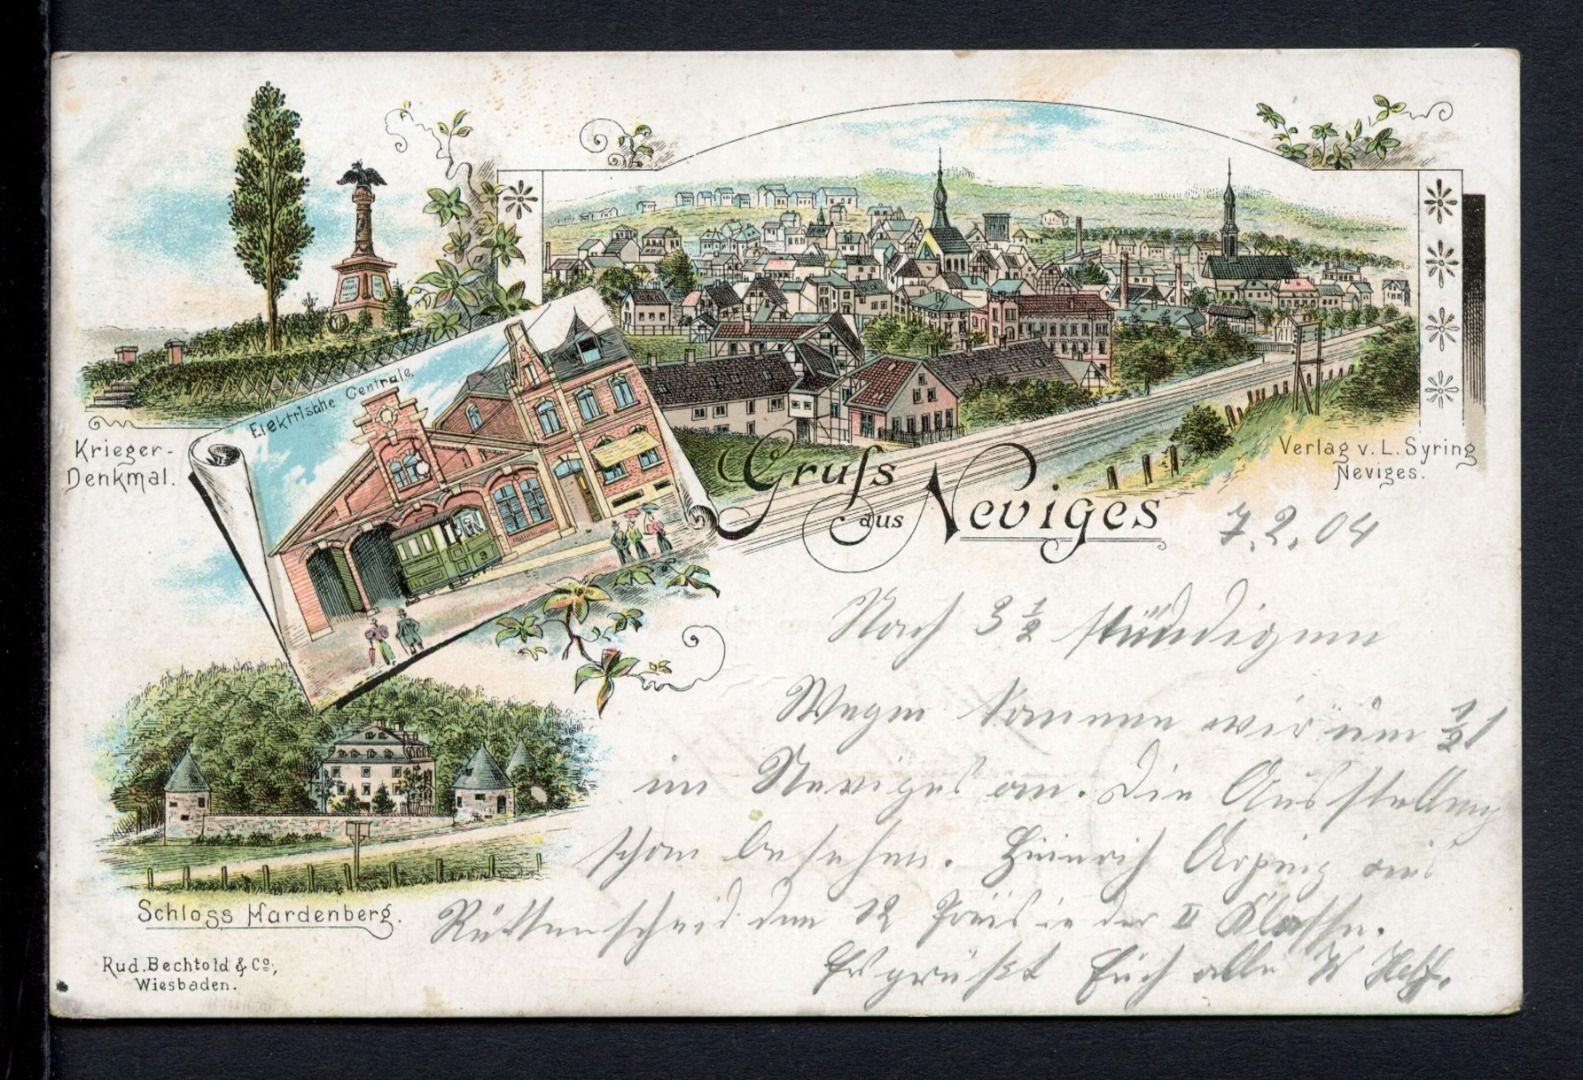 Elektrische Centrale
Krieger-
Denkmal.
Verlag v. L. Syring
Neviges.
Gruſs
aus Neviges
7.2.04
Nach 3 1/2 stündigem
Wagen kommen wir um 1/2 1
in Neviges an. Die Ausstellung
schon besehen. Heinrich Arping aus
Rüttenscheid den 12 Preis in der II Klasse.
Es grüßt Euch alle W
Schloss Hardenberg.
Rud. Bechtold & Co.,
Wiesbaden.